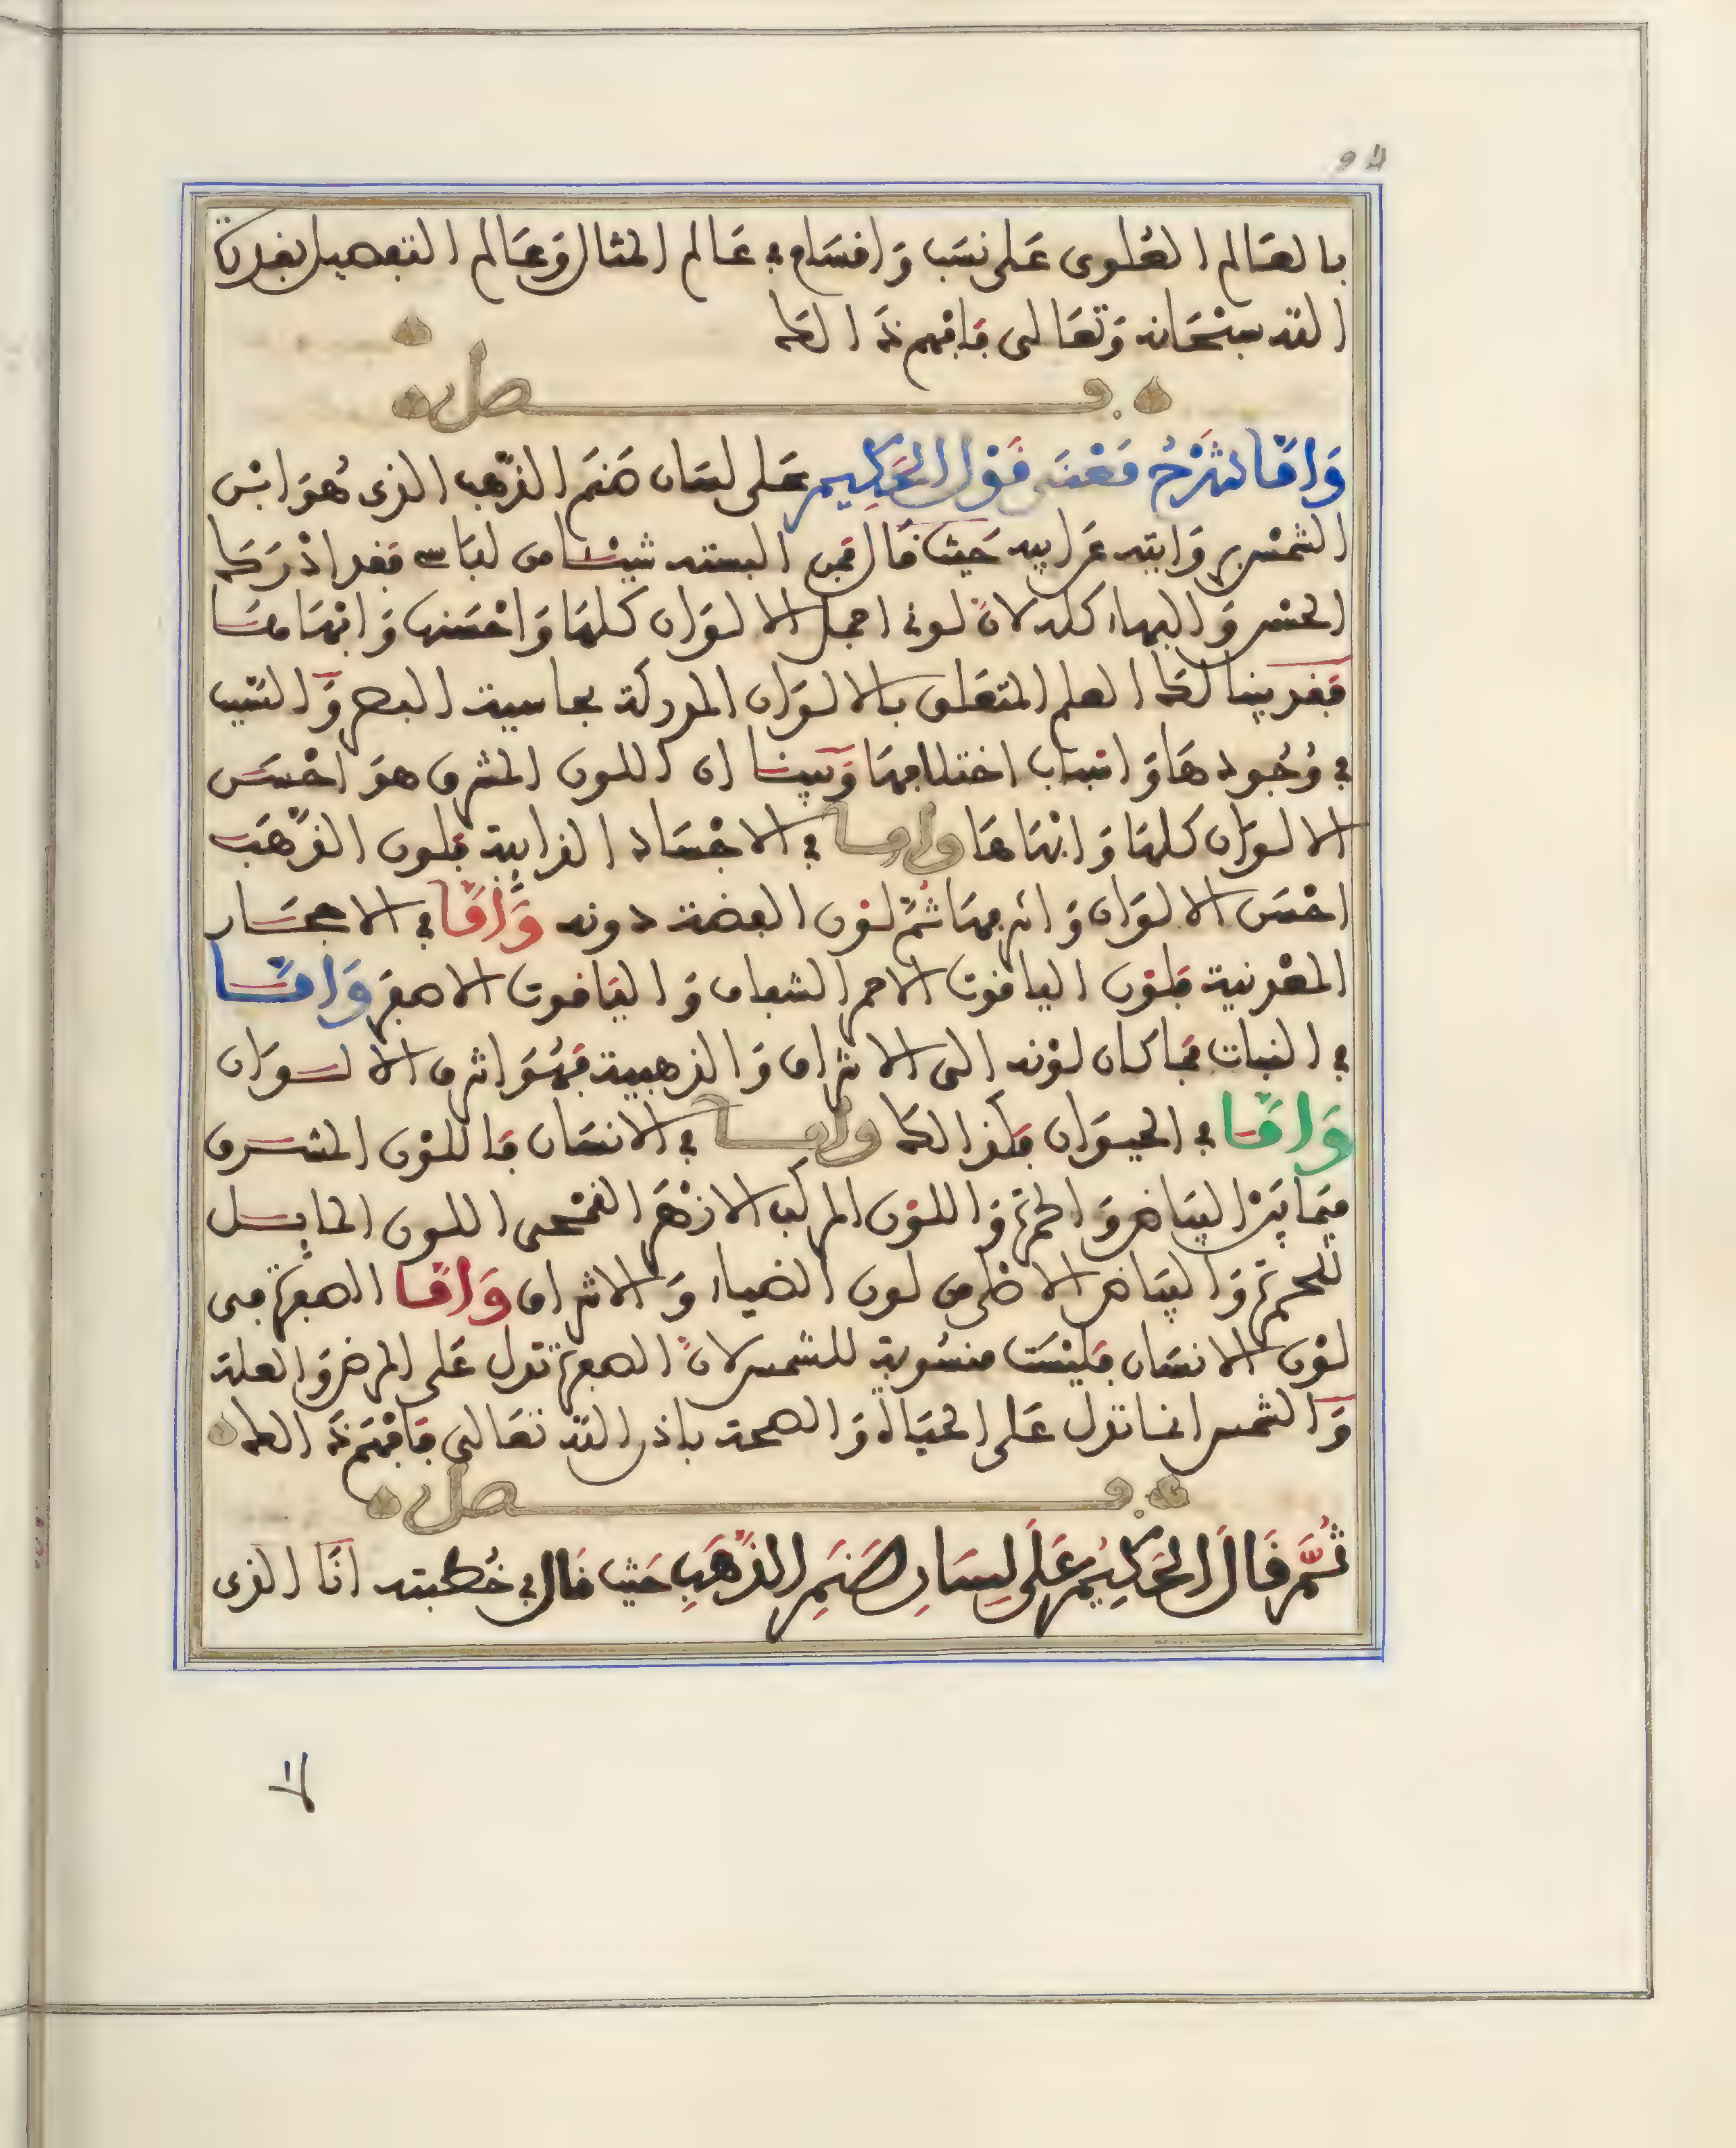 بالعالم العلوى على نسب وافسام في عالم المثال وعالم التفصيل بقدرة
الله سبحانه وتعالى فافهم ذلك
فصل
وَامّا شَرْحُ مَعْنَى قَوْل الحَكِيم على لسان صنم الذهب الذى هُوَ ابْن
الشمس وابنه عن ابيه حيث قال فمن البسته شيئا من لباسى فقد ادْرَك
الحسن والبهاء كله لان لونى اجمل الالوان كلها وَاحْسَنها وَابْهَاهَا
فقد بينا لك العلم المتعلق بالالوان المدركة بحاسية البصر وَالسبب
في وُجُودهَا وَاسباب اختلافها وَبينا ان اللون المشرق هو احْسَن
الالوان كلها وَابْهَاهَا وامـا في الاجْسَاد الذايبة فلون الذهَب
احْسَن الالوان وَاشرفها ثمّ لون الفضة دونه وَامّا في الاحجَار
المعْدنية فلون الياقوت الاحمر الشفاف وَالياقوت الاصفر وَامّـا
في النبات فما كان لوْنه الى الاشراق وَالذهبية فهُوَ اشرف الالـوَان
وَامّا في الحيوان فكذالك وامـا في الانسَان فاللوْن المشرق
فيما بيْن البياض وَالحمرة وَاللون المركب الازهَر القمْحى اللون المايل
للحمرة وَالبياض الاظهر من لون الضياء وَالاشراق وَامّا الصفرة فى
لوْن الانسَان فليْسَت منسُوبة للشمس لانّ الصفرة تدل عَلى المرض وَالعلة
وَالشمس انما تدل عَلى الحيَاة وَالصحة باذن الله تعَالى فافْهَم ذلك
فصل
ثُمَّ قَالَ الحَكِيمُ عَلَى لِسَانِ صَنَمِ الذَّهَبِ حَيْث قَال في خُطبته انَا الذى